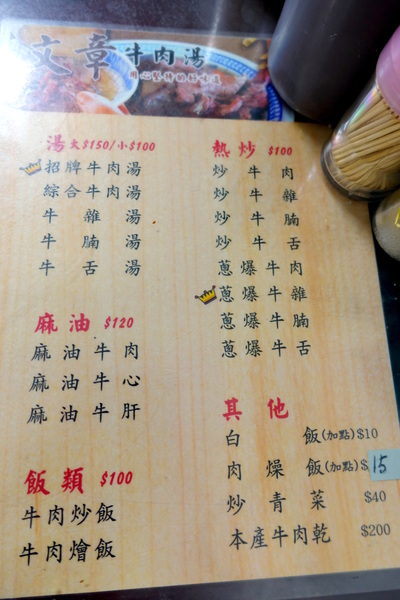 文章牛肉湯
用心堅持的好味道
湯 大$150/小$100
招牌牛肉湯
綜合牛肉湯
牛雜湯
牛腩湯
牛舌湯
麻油 $120
麻油牛肉
麻油牛心
麻油牛肝
飯類 $100
牛肉炒飯
牛肉燴飯
熱炒 $100
炒牛肉
炒牛雜
炒牛腩
炒牛舌
蔥爆牛肉
蔥爆牛雜
蔥爆牛腩
蔥爆牛舌
其他
白飯(加點)$10
肉燥飯(加點)$15
炒青菜 $40
本產牛肉乾 $200